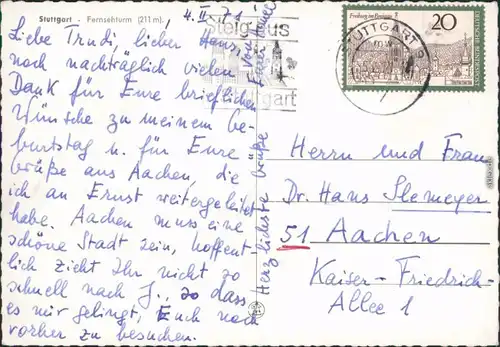 Stuttgart - Fernsehturm (211 m).
4. II 71
Liebe Trudi, lieber Hans,
noch nachträglich vielen
Dank für Eure brieflichen
Wünsche zu meinem Ge-
burtstag u. für Eure
Grüße aus Aachen, die
ich an Ernst weitergeleitet
habe. Aachen muss eine
schöne Stadt sein, hoffent-
lich zieht Ihr nicht so
schnell nach J., so dass
es mir gelingt, Euch noch
vorher zu besuchen.
Herzlichste Grüße von Eurer
Steig aus
Stuttgart
STUTTGART
Freiburg im Breisgau
20
DEUTSCHE BUNDESPOST
Herrn und Frau
Dr. Hans Slemeyer
51 Aachen
Kaiser-Friedrich-
Allee 1